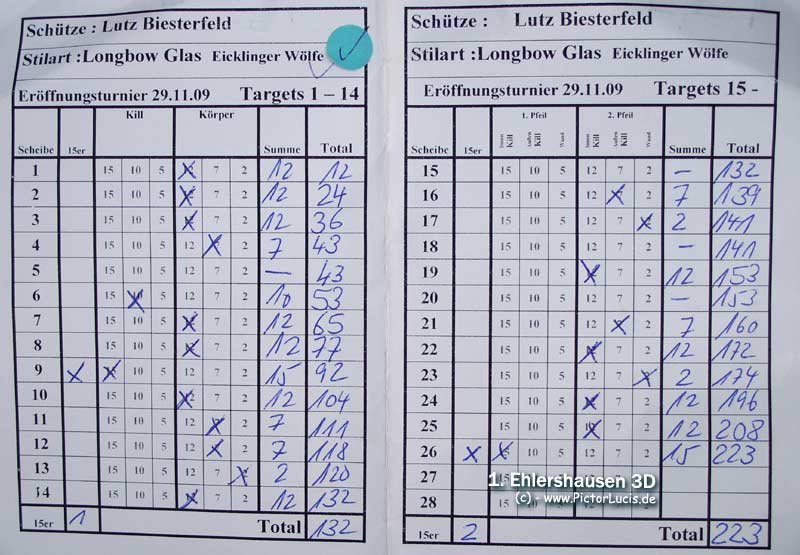 Schütze : Lutz Biesterfeld
Stilart :Longbow Glas Eicklinger Wölfe
Eröffnungsturnier 29.11.09 Targets 1 – 14
Kill Körper
Scheibe 15er Summe Total
1 15 10 5 X 7 2 12 12
2 15 10 5 X 7 2 12 24
3 15 10 5 X 7 2 12 36
4 15 10 5 12 X 2 7 43
5 15 10 5 12 7 2 — 43
6 15 X 5 12 7 2 10 53
7 15 10 5 X 7 2 12 65
8 15 10 5 X 7 2 12 77
9 X X 10 5 12 7 2 15 92
10 15 10 5 X 7 2 12 104
11 15 10 5 12 X 2 7 111
12 15 10 5 12 X 2 7 118
13 15 10 5 12 7 X 2 120
14 15 10 5 X 7 2 12 132
15er 1 Total 132
Schütze : Lutz Biesterfeld
Stilart :Longbow Glas Eicklinger Wölfe
Eröffnungsturnier 29.11.09 Targets 15 -
1. Pfeil 2. Pfeil
Scheibe 15er Innen Kill Außen Kill Wund Innen Kill Außen Kill Wund Summe Total
15 15 10 5 12 7 2 — 132
16 15 10 5 12 X 2 7 139
17 15 10 5 12 7 X 2 141
18 15 10 5 12 7 2 — 141
19 15 10 5 X 7 2 12 153
20 15 10 5 12 7 2 — 153
21 15 10 5 12 X 2 7 160
22 15 10 5 X 7 2 12 172
23 15 10 5 12 7 X 2 174
24 15 10 5 X 7 2 12 196
25 15 10 5 X 7 2 12 208
26 X X 10 5 12 7 2 15 223
27
28 15 10 5 12 7 2
15er 2 Total 223
1. Ehlershausen 3D
(c) - www.PictorLucis.de